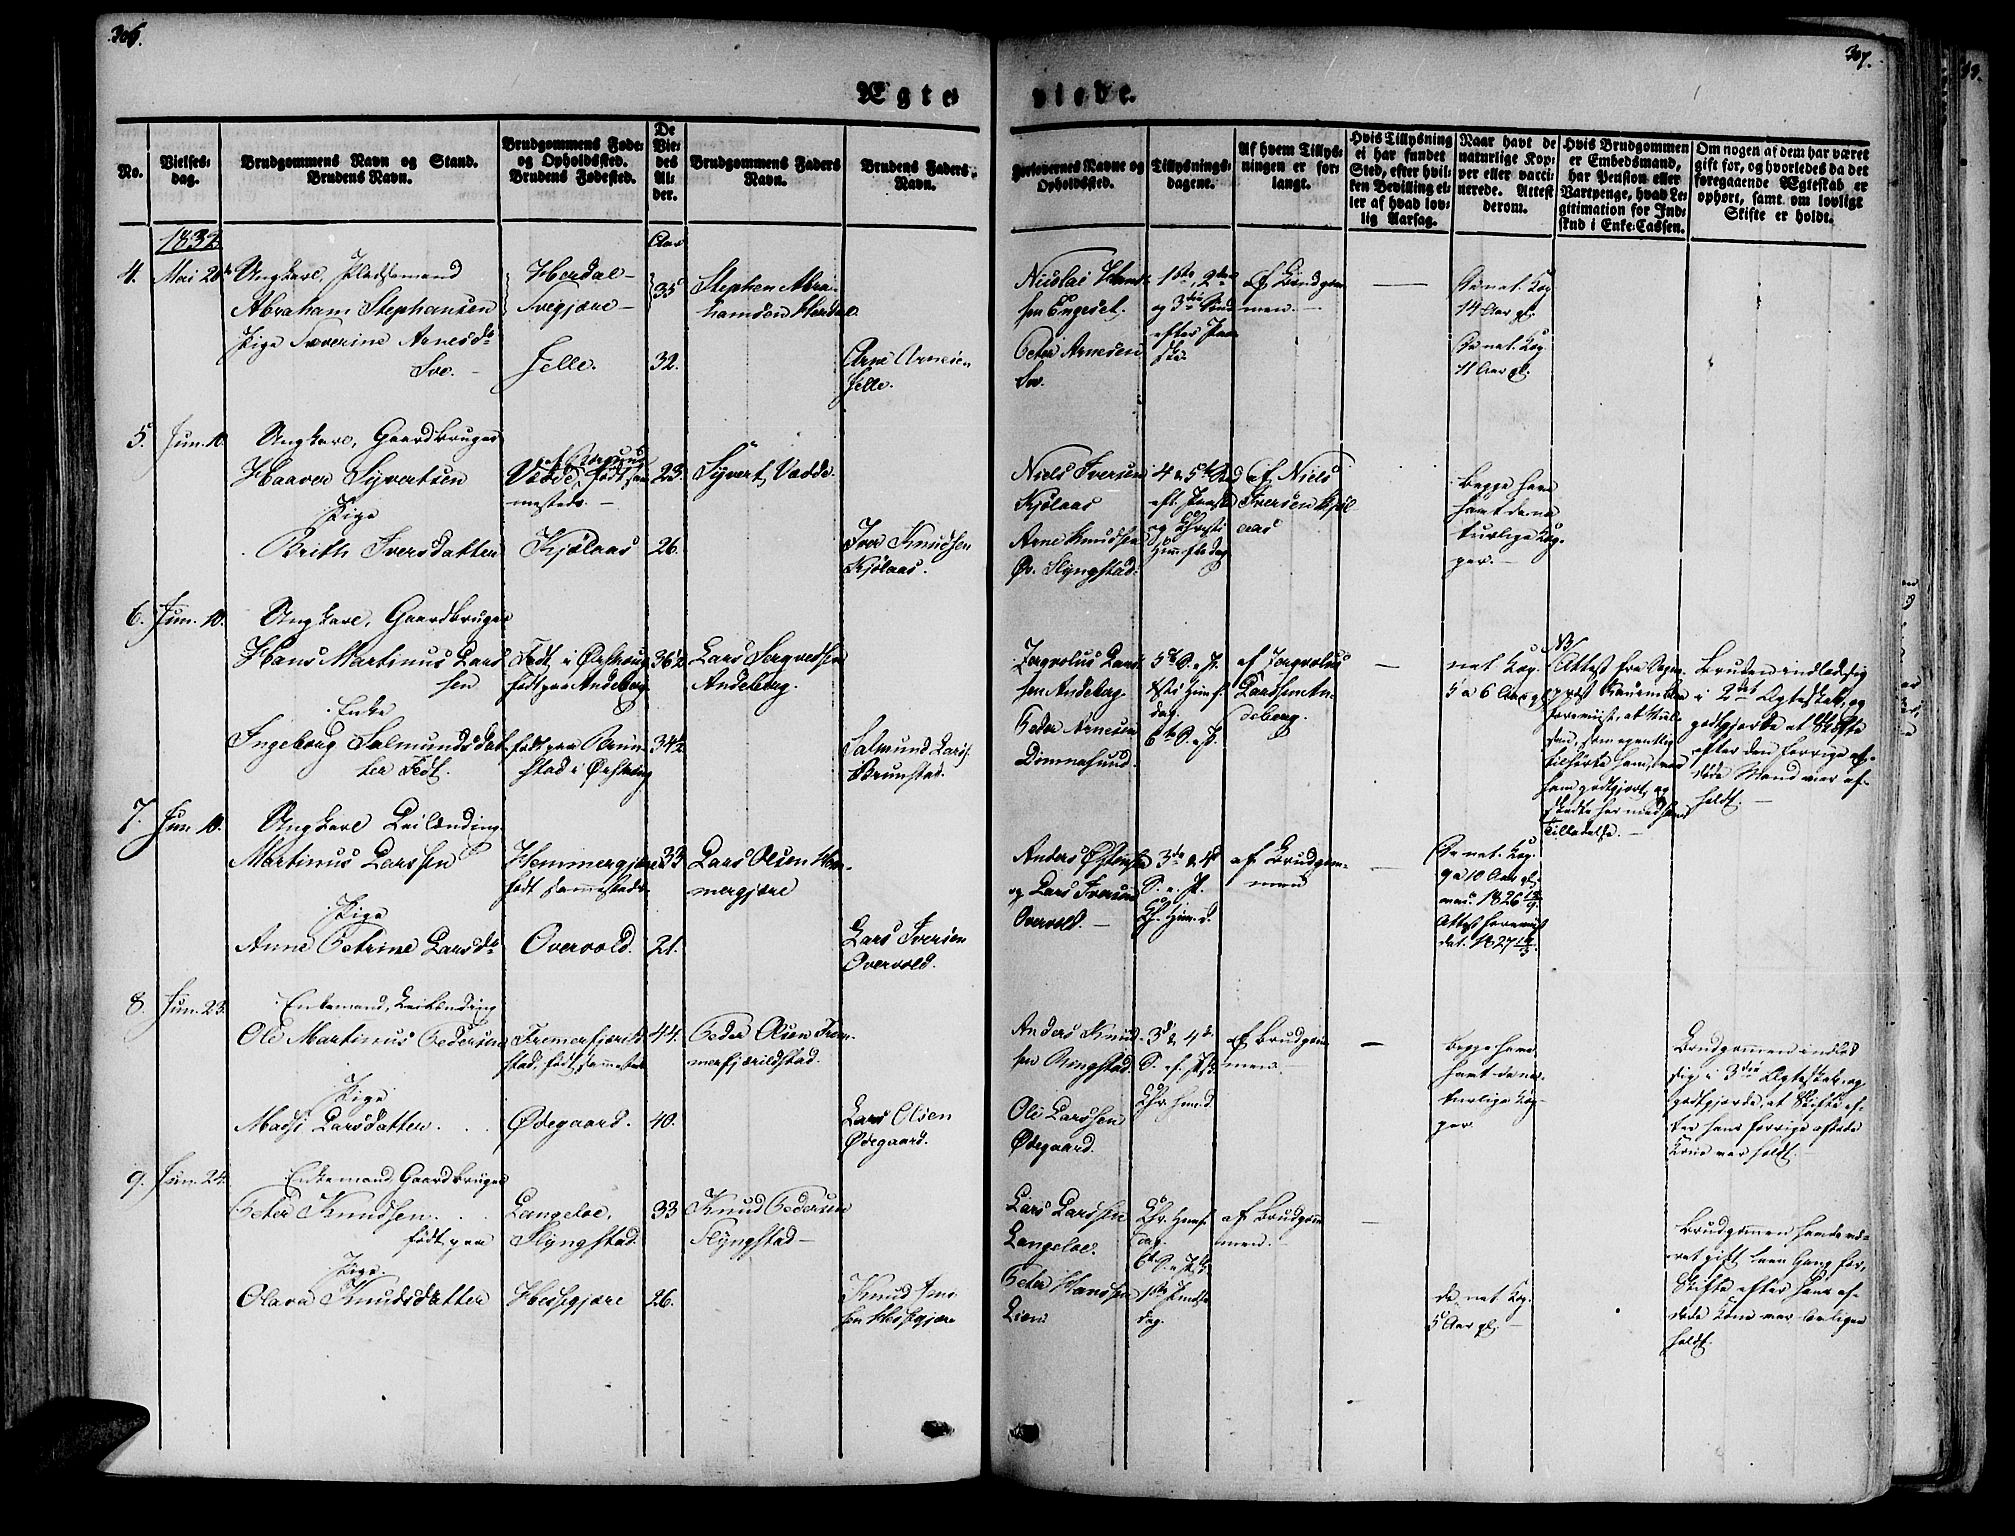 306.
307.
Ægte
viede.
No.
Vielses-
dag.
Brudgommens Navn og Stand.
Brudens Navn.
Brudgommens Føde-
og Opholdssted.
Brudens Fødested.
De
Vie-
des
Al-
der.
Brudgommens Faders
Navn.
Brudens Faders
Navn.
Forlovernes Navne og
Opholdssted.
Tillysnings-
dagene.
Af hvem Tillys-
ningen er for-
langt.
Hvis Tillysning
ei har fundet
Sted, efter hvil-
ken Bevilling el-
ler af hvad lov-
lig Aarsag.
Naar havt de
naturlige Kop-
per eller vacci-
nerede. Attest
derom.
Hvis Brudgommen
er Embedsmand,
har Pension eller
Vartpenge, hvad Le-
gitimation for Ind-
skud i Enke-Cassen.
Om nogen af dem har været
gift før, og hvorledes da det
foregaaende Ægteskab er
ophørt, samt om lovligt
Skifte er holdt.
1832
Aar
4. Mai 20de Ungkarl, Pladsemand
Abraham Stephansen
Pige Severine Arnesdr
Sve.
Herdal
Svegjære
Jelle.
35
32.
Stephen Abra-
hamsøn Herdal
Arne Arnesen
Jelle.
Nicolai Han-
sen Engeset.
Peter Arnesen
Sve.
1ste, 2den
og 3die Sønd
efter Paa-
ske
af Brudgom
men.
De nat. Kop.
14 Aar gl.
De nat. Kop.
11 Aar gl.
5. Jun. 10. Ungkarl, Gaardbruger
Haaver Syvertsen
Pige
Brith Iversdatter
Vadde, født sam
mesteds.
Kjølaas
23.
26.
Syvert Vadde.
Iver Knudsen
Kjølaas.
Niels Iversen
Kjølaas
Arne Knudsen
Øv. Slyngstad.
4 & 5te Sønd
eft. Paaske
og Christi
Himfts dag
af Niels
Iversen Kjøl
aas
Begge have
havt de na
turlige Kop-
per.
6. Jun. 10. Ungkarl, Gaardbruger
Hans Martinus Lars
sen
Enke
Ingeborg Salmundsdat
ter Født.
Født i Ørskoug
født paa Andeberg
født paa Brun
stad i Ørskoug
36½
34½
Lars Sergvedsen
Andeberg.
Salmund Larss.
Brunstad.
sen Andeberg.
Peder Arnesen
Dimnasund.
5te S. e. P.
Xsti Himf.
dag.
6te S. e. P.
Larssen An-
deberg.
nat. Kop.
5 a 6 Aar gl.
NB
Attest fra Sogne
præst
Tilladelse.
Bruden indlod sig
i 2det Ægteskab, og
godtgjorde at Skifte
efter den forrige af-
døde Mand var af-
holdt.
7. Jun. 10. Ungkarl Leilænding
Martinus Larssen
Pige
Anne Petrine Larsdr
Hammergjære
født sammesteds.
Overvold.
33
21.
Lars Olsen Ham-
mergjære
Lars Iversen
Overvold.
og Lars Iversen
Overvold.
3die & 4de
S. e. P.
Ch. Him. d.
af Brudgom-
men
De nat. Kop.
9 a 10 Aar gl.
Attest forevist
8. Jun. 23. Enkemand, Leilænding
Ole Martinus Pedersen
Pige
Madsi Larsdatter.
Fremerfjærild
stad, født sammested
Ødegaard.
44.
40.
Peder Olsen Frem-
merfjærildstad.
Lars Olsen
Ødegaard.
Anders Knud
sen Ringstad.
Ole Larssen
Ødegaard.
3de & 4de
S. ef. Psk
Chr. Him. d.
af Brudgom
men.
Begge have
havt de na-
turlige Kop-
per
Brudgommen indlod
sig i 3die Ægteskab, og
godtgjorde, at Skifte ef-
ter hans forrige afdøde
Kone var holdt.
9. Jun. 24. Enkemand Gaardbruger
Peter Knudsen.
født paa
Pige.
Olava Knudsdatter
Langeløe,
Slyngstad.
Hessgjære
33
26.
Knud Pedersen
Slyngstad
Knud
sen Hessgjære
Lars Larssen
Langeløe.
Peter Hanssen
Lien
Chr. Himf.
dag.
6te S. e. P. &
1ste Pindse
dag.
af Brudgom
men.
de nat. Kop.
5 Aar gl.
Brudgommen havde væ-
ret gift een Gang før,
Skifte efter hans af-
døde Kone var lovligen
holdt.